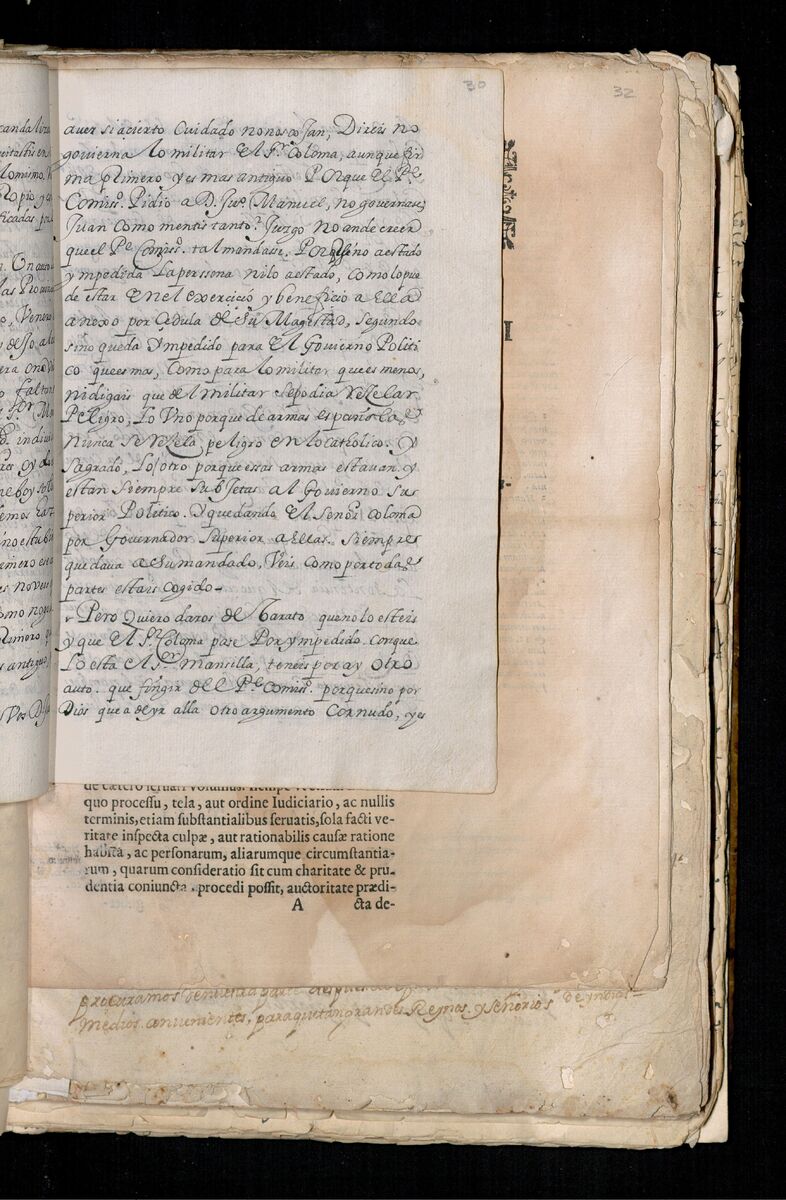 30
32
auer si acierto Cuidado no nos cojan, Direis no
gouierna lo militar El Sr. Coloma, aunque fir
ma primero y es mas antiguo Porque El Pe.
Comisso. Pidio a D. Jua. Manuel, no gouernase,
Juan como mentis tanto? Juzgo no ande creer
que el Pe. Comisso. tal mandase. Porque no a estado
ympedida la perssona ni lo a estado, como lo pue
de estar En el exercicio y beneficio a Ella
anexo por Cedula de Su Magestad, Segundo
sino queda Ympedido para El Gouierno Politi
co que es mas, Como para lo militar que es menos,
ni digais que del militar se podia Rezelar
Peligro, Lo Vno porque de armas españolas
Nunca Se Rezela peligro en lo catholico. Y
Sagrado, Lo otro porque essas armas estauan y
estan Siempre Subjetas al Gouierno Su
perior Politico. Y quedando El Señor Coloma
por Gouernador Superior a Ellas. Siempre
quedaua a Su mandado, Veis como por todas
partes estais cogido-
Pero Quiero daros de Barato que no lo esteis
y que El Sr. Coloma pase Por ympedido. Conque
Lo esta el Sor. Mansilla, teneis por ay otro
auto. que fingir del Pe. Comisso. porque sino por
Dios que a de yr alla otro argumento Cornudo, y es
quo processu, tela, aut ordine Iudiciario, ac nullis
terminis, etiam substantialibus seruatis, sola facti ve-
ritate inspecta culpæ, aut rationabilis causæ ratione
habita, ac personarum, aliarumque circumstantia-
rum, quarum consideratio sit cum charitate & pru-
dentia coniuncta, procedi possit, auctoritate prædi-
A cta de-
procuramos de nuestra parte
medios conuenientes, para que tan grandes Reynos. y señorios de yndias